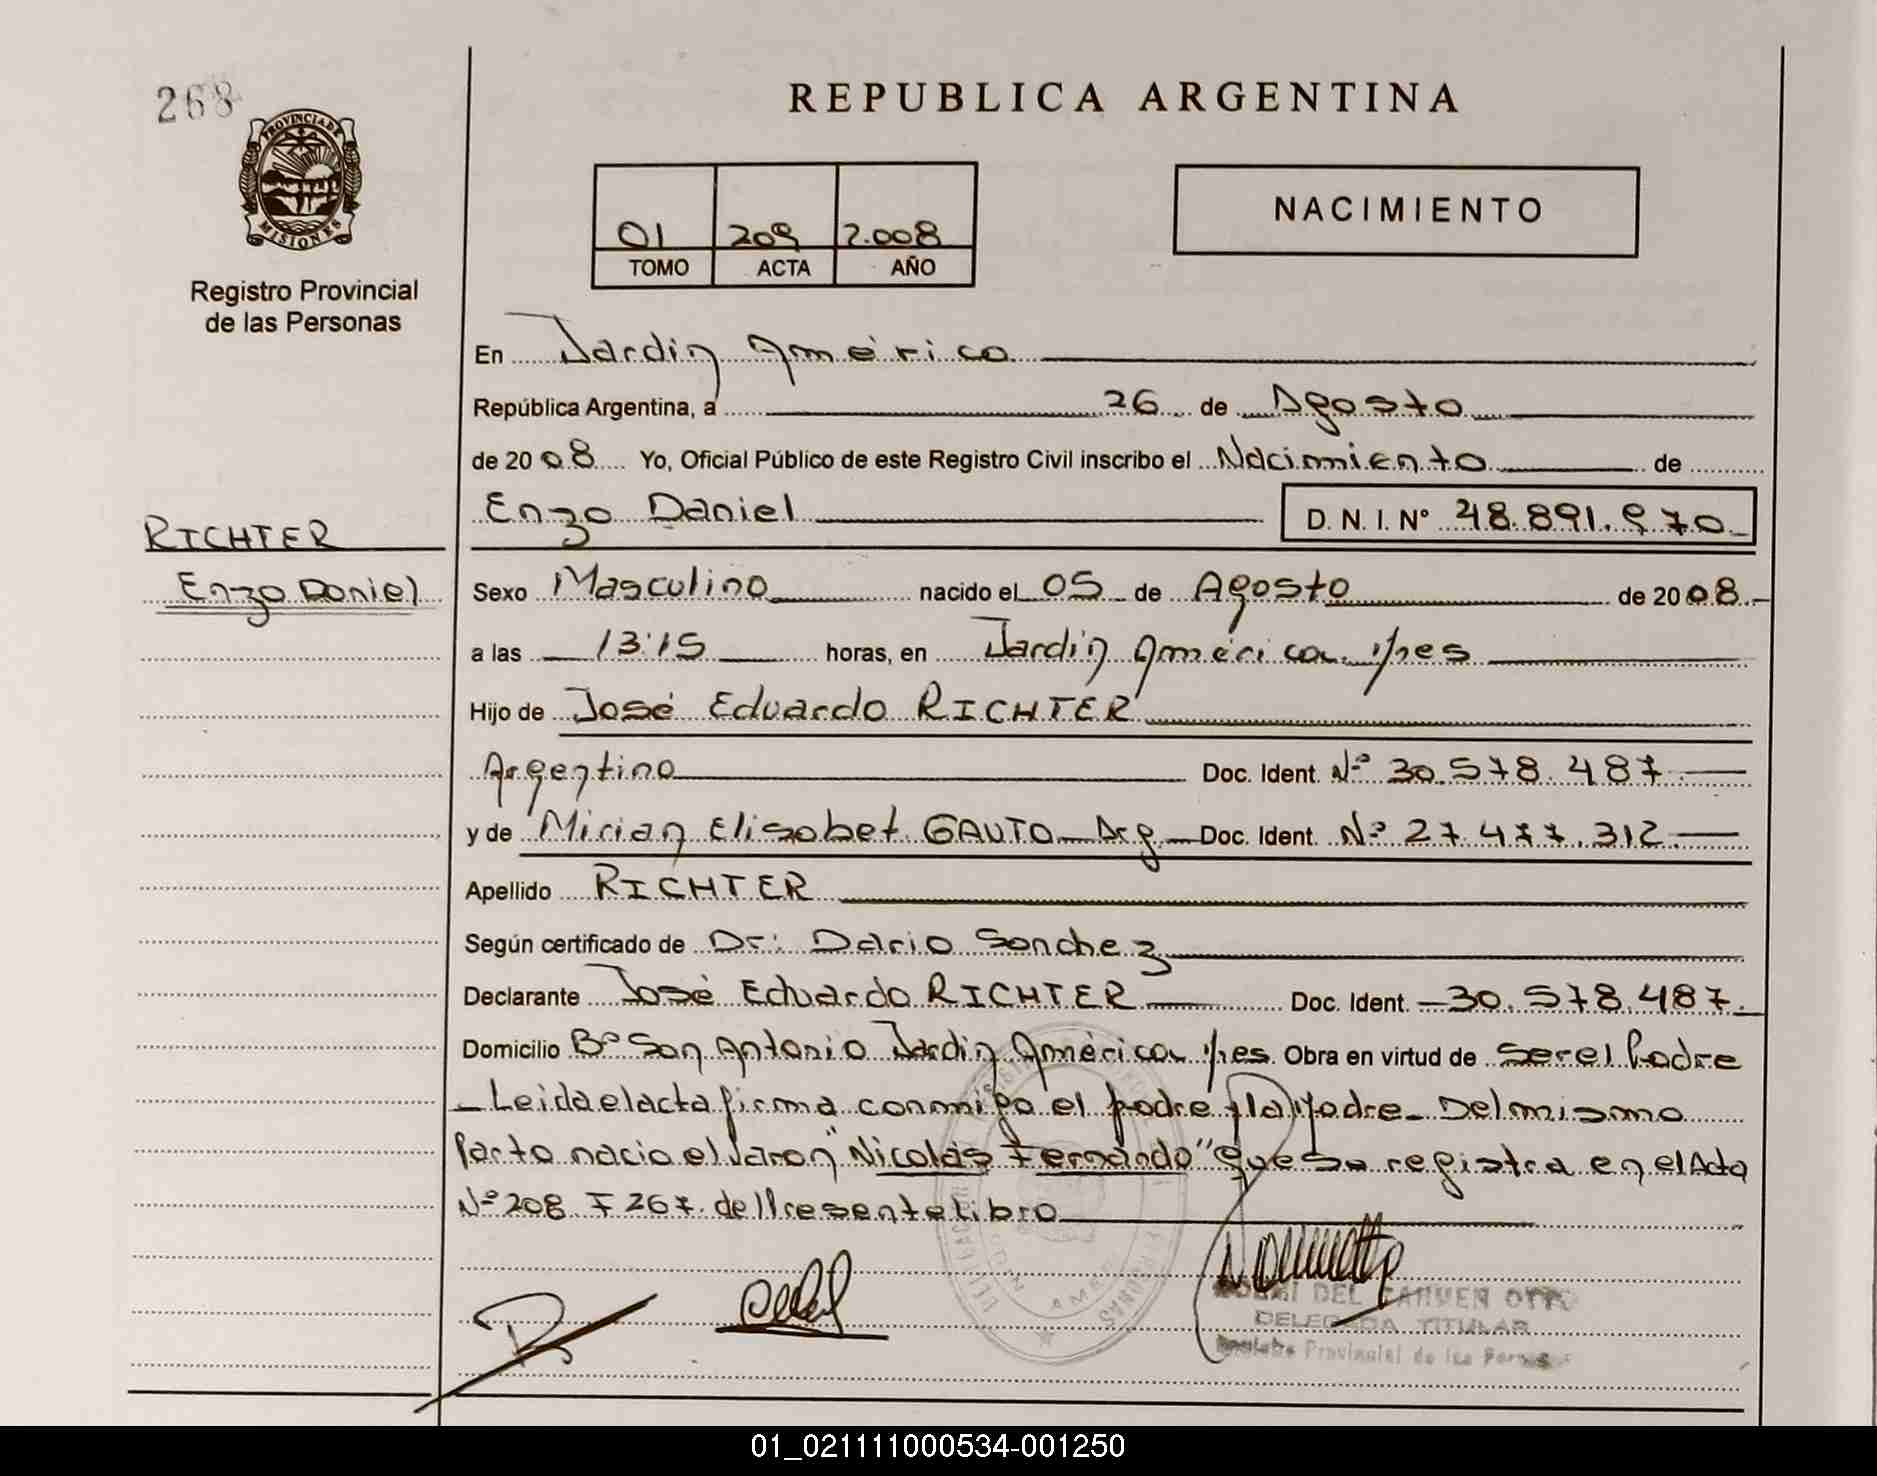 268
PROVINCIA DE
MISIONES
Registro Provincial
de las Personas
REPUBLICA ARGENTINA
01 209 2.008
TOMO ACTA AÑO
NACIMIENTO
En Jardín América
República Argentina, a 26 de Agosto
de 2008 Yo, Oficial Público de este Registro Civil inscribo el Nacimiento de
Enzo Daniel D. N. I. N° 48.891.970
RICHTER
Enzo Daniel
Sexo Masculino nacido el 05 de Agosto de 2008.-
a las 13:15 horas, en Jardín América
Hijo de José Eduardo RICHTER
Argentino Doc. Ident. Nº 30.578.487
y de Mirian Elisabet GAUTO Arg Doc. Ident. Nº 27.477.312
Apellido RICHTER
Según certificado de Dr: Dario Sanchez
Declarante José Eduardo RICHTER Doc. Ident. 30.578.487.
Domicilio Bº San Antonio Jardín América Obra en virtud de ser el Padre
Leida el acta firma conmigo el padre y la Madre. Del mismo
Parto nacio el varon "Nicolás Fernando" que se registra en el Acta
Nº 208 F 267 del Presente Libro
DEL CARMEN OTTO
DELEGADA TITULAR
Provincial de las
01_021111000534-001250